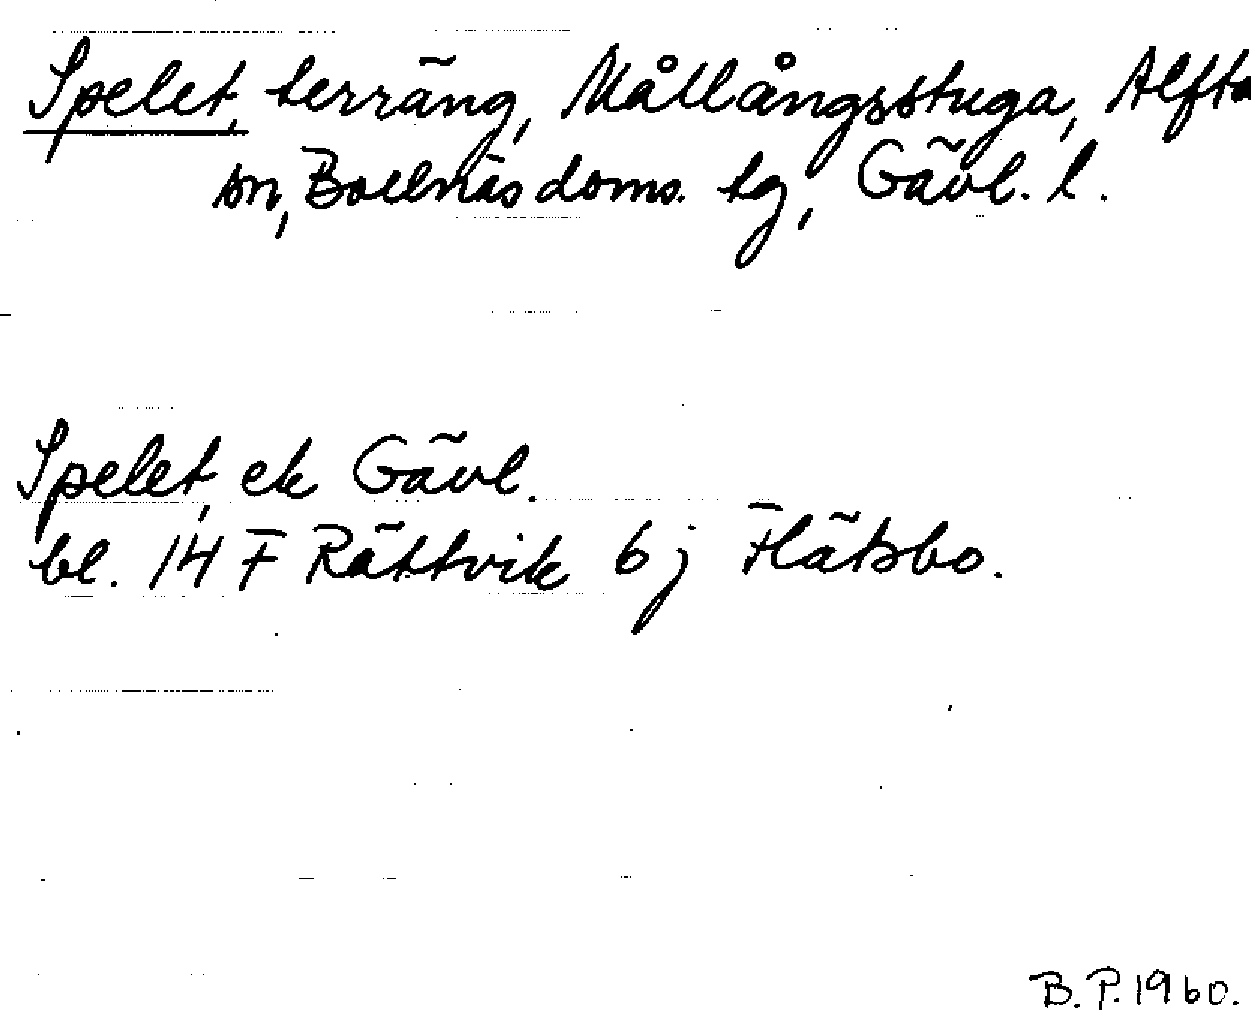 Spelet, terräng, Mållångsstuga, Alfta
sn, Bollnäs doms. tg, Gävl. l.
Spelet, ek Gävl.
bl. 14 F Rättvik 6j Flätsbo.
B. P. 1960.